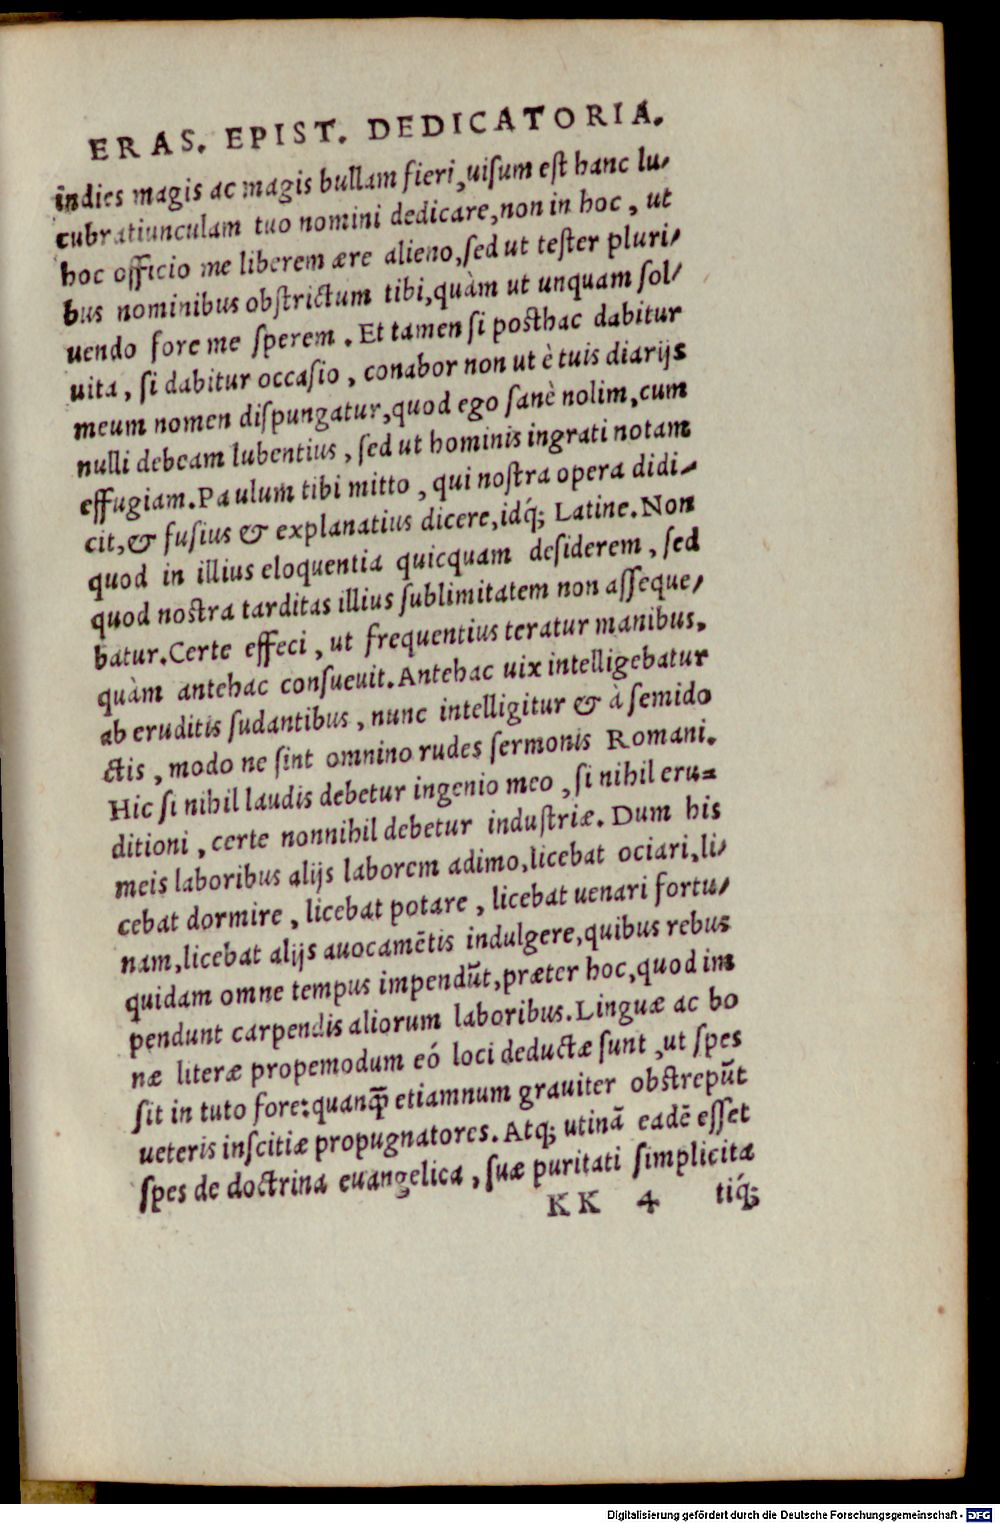 ERAS. EPIST. DEDICATORIA.
indies magis ac magis bullam fieri, uiſum eſt hanc lu-
cubratiunculam tuo nomini dedicare, non in hoc, ut
hoc officio me liberem ære alieno, ſed ut teſter pluri-
bus nominibus obſtrictum tibi, quàm ut unquam ſol-
uendo fore me ſperem. Et tamen ſi poſthac dabitur
uita, ſi dabitur occaſio, conabor non ut è tuis diarijs
meum nomen diſpungatur, quod ego ſanè nolim, cum
nulli debeam lubentius, ſed ut hominis ingrati notam
effugiam. Paulum tibi mitto, qui noſtra opera didi-
cit, & fuſius & explanatius dicere, idq́; Latine. Non
quod in illius eloquentia quicquam deſiderem, ſed
quod noſtra tarditas illius ſublimitatem non aſſeque-
batur. Certe effeci, ut frequentius teratur manibus,
quàm antehac conſueuit. Antehac uix intelligebatur
ab eruditis ſudantibus, nunc intelligitur & à ſemido
ctis, modo ne ſint omnino rudes ſermonis Romani.
Hic ſi nihil laudis debetur ingenio meo, ſi nihil eru-
ditioni, certe nonnihil debetur induſtriæ. Dum his
meis laboribus alijs laborem adimo, licebat ociari, li-
cebat dormire, licebat potare, licebat uenari fortu-
nam, licebat alijs auocamẽtis indulgere, quibus rebus
quidam omne tempus impendũt, præter hoc, quod im
pendunt carpendis aliorum laboribus. Linguæ ac bo
næ literæ propemodum eó loci deductæ ſunt, ut ſpes
ſit in tuto fore: quanꝙ̃ etiamnum grauiter obſtrepũt
ueteris inſcitiæ propugnatores. Atq; utinã eadẽ eſſet
ſpes de doctrina euangelica, ſuæ puritati ſimplicita
KK 4 tiq́;
Digitalisierung gefördert durch die Deutsche Forschungsgemeinschaft - DFG